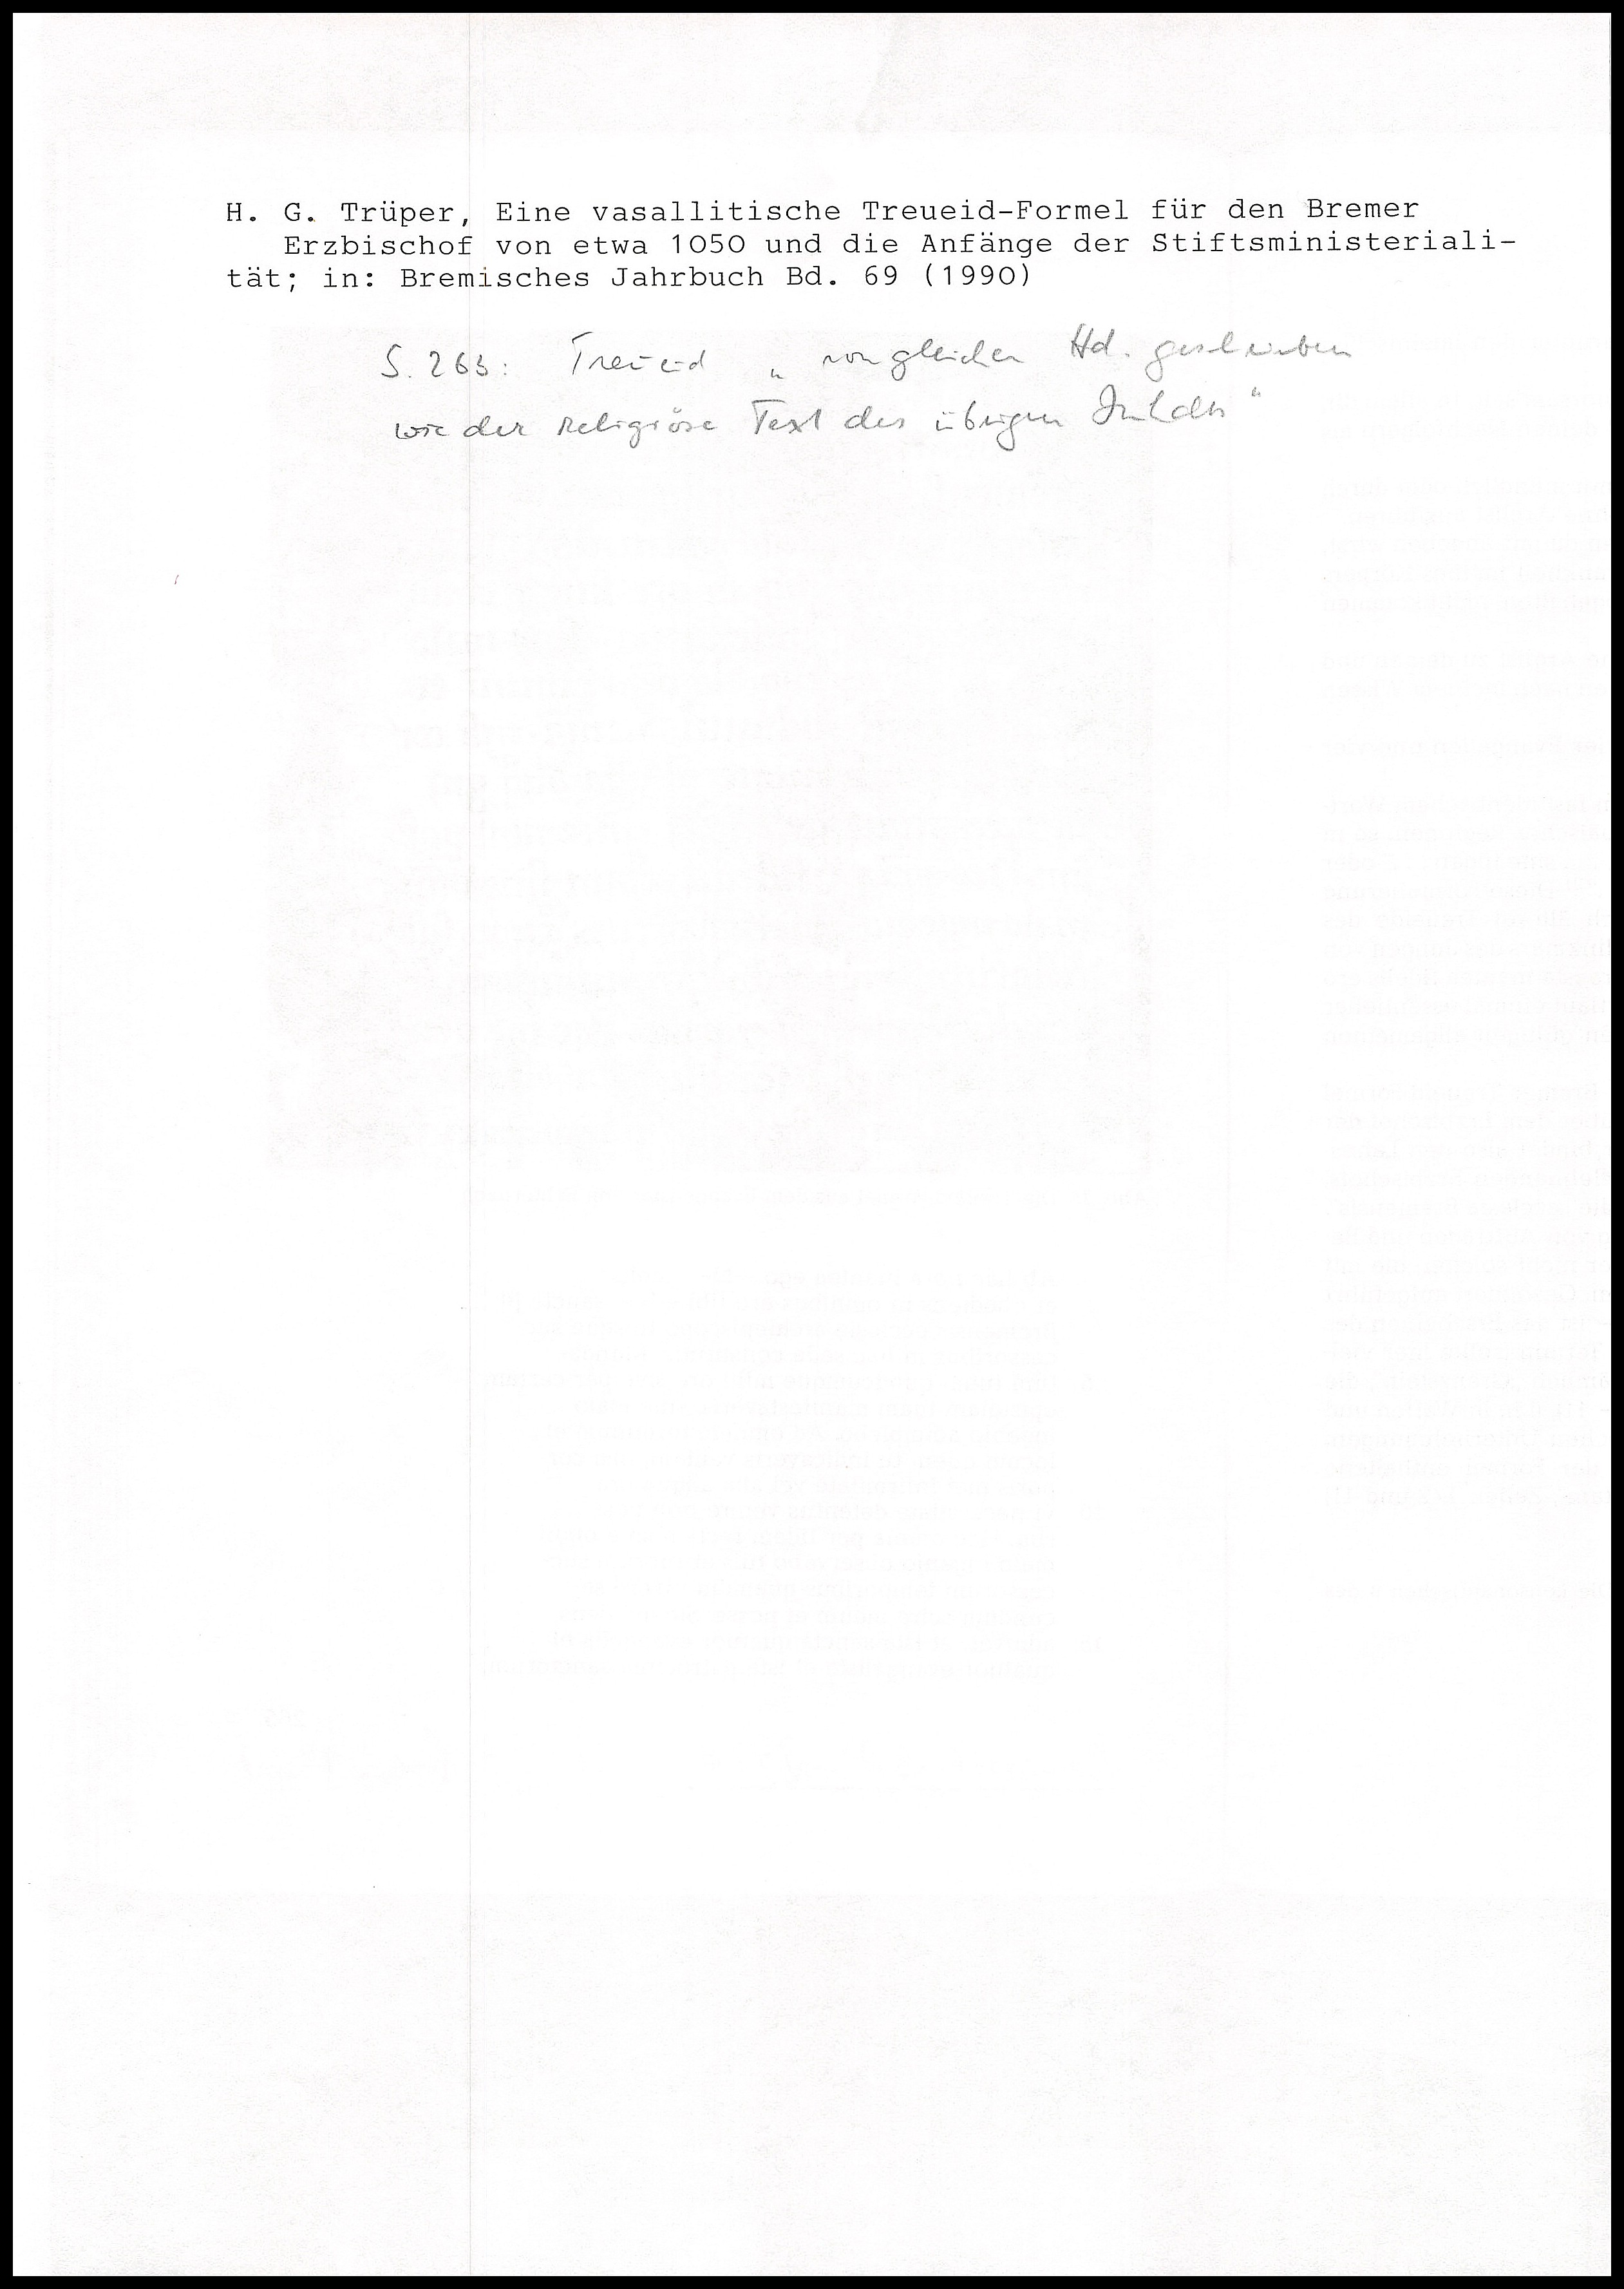 H. G. Trüper, Eine vasallitische Treueid-Formel für den Bremer
Erzbischof von etwa 1050 und die Anfänge der Stiftsministeriali-
tät; in: Bremisches Jahrbuch Bd. 69 (1990)
S. 263: Treueid „ von gleicher Hd. geschrieben
wie der religiöse Text des übrigen Inhalts "